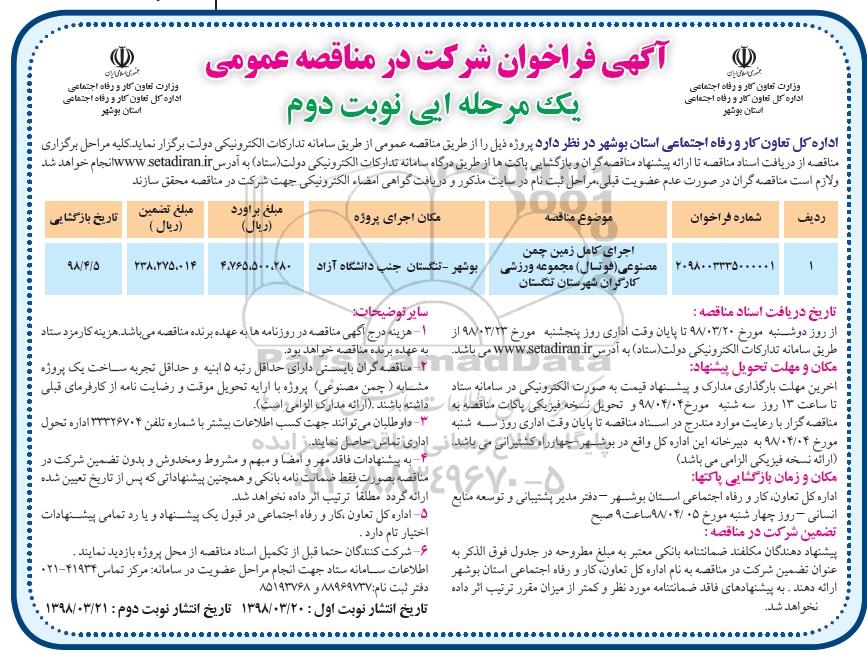 آگهی فراخوان شرکت در مناقصه عمومی
یک مرحله ایی نوبت دوم
جمهوری اسلامی ایران
وزارت تعاون کار و رفاه اجتماعی
اداره کل تعاون کار و رفاه اجتماعی
استان بوشهر
جمهوری اسلامی ایران
وزارت تعاون کار و رفاه اجتماعی
اداره کل تعاون کار و رفاه اجتماعی
استان بوشهر
اداره کل تعاون کار و رفاه اجتماعی استان بوشهر در نظر دارد پروژه ذیل را از طریق مناقصه عمومی از طریق سامانه تدارکات الکترونیکی دولت برگزار نماید.کلیه مراحل برگزاری
مناقصه از دریافت اسناد مناقصه تا ارائه پیشنهاد مناقصه گران و بازگشایی پاکت ها از طریق درگاه سامانه تدارکات الکترونیکی دولت(ستاد) به آدرس www.setadiran.ir انجام خواهد شد
ولازم است مناقصه گران در صورت عدم عضویت قبلی،مراحل ثبت نام در سایت مذکور و دریافت گواهی امضاء الکترونیکی جهت شرکت در مناقصه محقق سازند
ردیف	شماره فراخوان	موضوع مناقصه	مکان اجرای پروژه	مبلغ براورد (ریال)	مبلغ تضمین (ریال )	تاریخ بازگشایی
۱	۲۰۹۸۰۰۳۳۳۵۰۰۰۰۰۱	اجرای کامل زمین چمن مصنوعی(فوتسال) مجموعه ورزشی کارگران شهرستان تنگستان	بوشهر -تنگستان جنب دانشگاه آزاد	۴،۷۶۵،۵۰۰،۲۸۰	۲۳۸،۲۷۵،۰۱۴	۹۸/۴/۵
تاریخ دریافت اسناد مناقصه :
از روز دوشنبه مورخ ۹۸/۰۳/۲۰ تا پایان وقت اداری روز پنجشنبه مورخ ۹۸/۰۳/۲۳ از
طریق سامانه تدارکات الکترونیکی دولت(ستاد) به آدرس www.setadiran.ir می باشد.
مکان و مهلت تحویل پیشنهاد:
اخرین مهلت بارگذاری مدارک و پیشنهاد قیمت به صورت الکترونیکی در سامانه ستاد
تا ساعت ۱۳ روز سه شنبه مورخ ۹۸/۰۴/۰۴ و تحویل نسخه فیزیکی پاکات مناقصه به
مناقصه گزار با رعایت موارد مندرج در اسناد مناقصه تا پایان وقت اداری روز سه شنبه
مورخ ۹۸/۰۴/۰۴ به دبیرخانه این اداره کل واقع در بوشهر -چهارراه کشتیرانی می باشد.
(ارائه نسخه فیزیکی الزامی می باشد)
مکان و زمان بازگشایی پاکتها:
اداره کل تعاون،کار و رفاه اجتماعی استان بوشهر –دفتر مدیر پشتیبانی و توسعه منابع
انسانی – روز چهار شنبه مورخ ۹۸/۰۴/۰۵ ساعت ۹ صبح
تضمین شرکت در مناقصه :
پیشنهاد دهندگان مکلفند ضمانتنامه بانکی معتبر به مبلغ مطروحه در جدول فوق الذکر به
عنوان تضمین شرکت در مناقصه به نام اداره کل تعاون، کار و رفاه اجتماعی استان بوشهر
ارائه دهند . به پیشنهادهای فاقد ضمانتنامه مورد نظر و کمتر از میزان مقرر ترتیب اثر داده
نخواهد شد.
سایر توضیحات:
۱- هزینه درج آگهی مناقصه در روزنامه ها به عهده برنده مناقصه می‌باشد.هزینه کارمزد ستاد
به عهده برنده مناقصه خواهد بود.
۲- مناقصه گران بایستی دارای حداقل رتبه ۵ ابنیه و حداقل تجربه ساخت یک پروژه
مشابه ( چمن مصنوعی) پروژه با ارایه تحویل موقت و رضایت نامه از کارفرمای قبلی
داشته باشند .(ارائه مدارک الزامی است).
۳- داوطلبان می‌توانند جهت کسب اطلاعات بیشتر با شماره تلفن ۳۳۳۲۶۷۰۴ اداره تحول
اداری تماس حاصل نمایند.
۴- به پیشنهادات فاقد مهر و امضا و مبهم و مشروط ومخدوش و بدون تضمین شرکت در
مناقصه بصورت فقط ضمانت نامه بانکی و همچنین پیشنهاداتی که پس از تاریخ تعیین شده
ارائه گردد مطلقاً ترتیب اثر داده نخواهد شد.
۵- اداره کل تعاون ،کار و رفاه اجتماعی در قبول یک پیشنهاد و یا رد تمامی پیشنهادات
اختیار تام دارد .
۶- شرکت کنندگان حتما قبل از تکمیل اسناد مناقصه از محل پروژه بازدید نمایند .
اطلاعات سامانه ستاد جهت انجام مراحل عضویت در سامانه: مرکز تماس ۴۱۹۳۴-۰۲۱
دفتر ثبت نام: ۸۸۹۶۹۷۳۷ و ۸۵۱۹۳۷۶۸
تاریخ انتشار نوبت اول : ۱۳۹۸/۰۳/۲۰ تاریخ انتشار نوبت دوم : ۱۳۹۸/۰۳/۲۱
ParsNamadData
۰۲۱-۸۸۳۴۹۶۷۰-۵